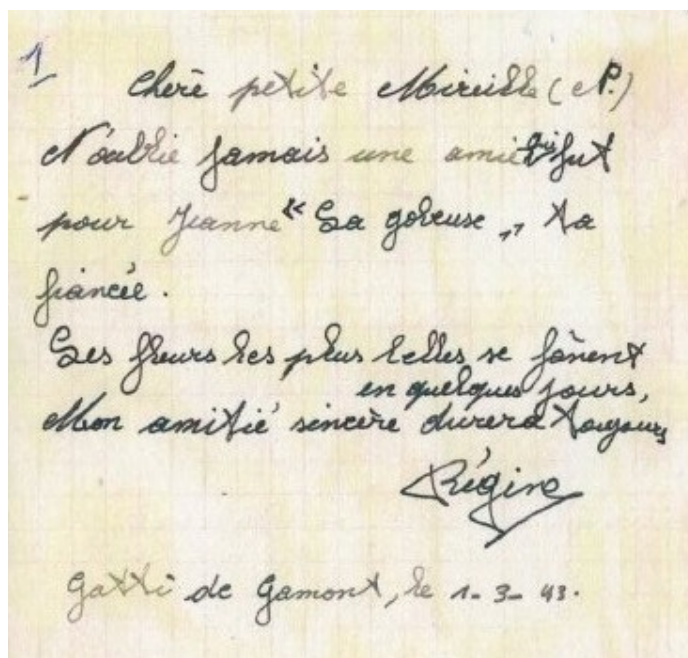 1
Chère petite Mireille (P.)
N'oublie jamais une amie qui fut
pour Jeanne "La gobeuse" ta
fiancée.
Les fleurs les plus belles se fânent
en quelques jours,
Mon amitié sincère durera toujours
Régine
Gatti de Gamont, le 1-3-43.